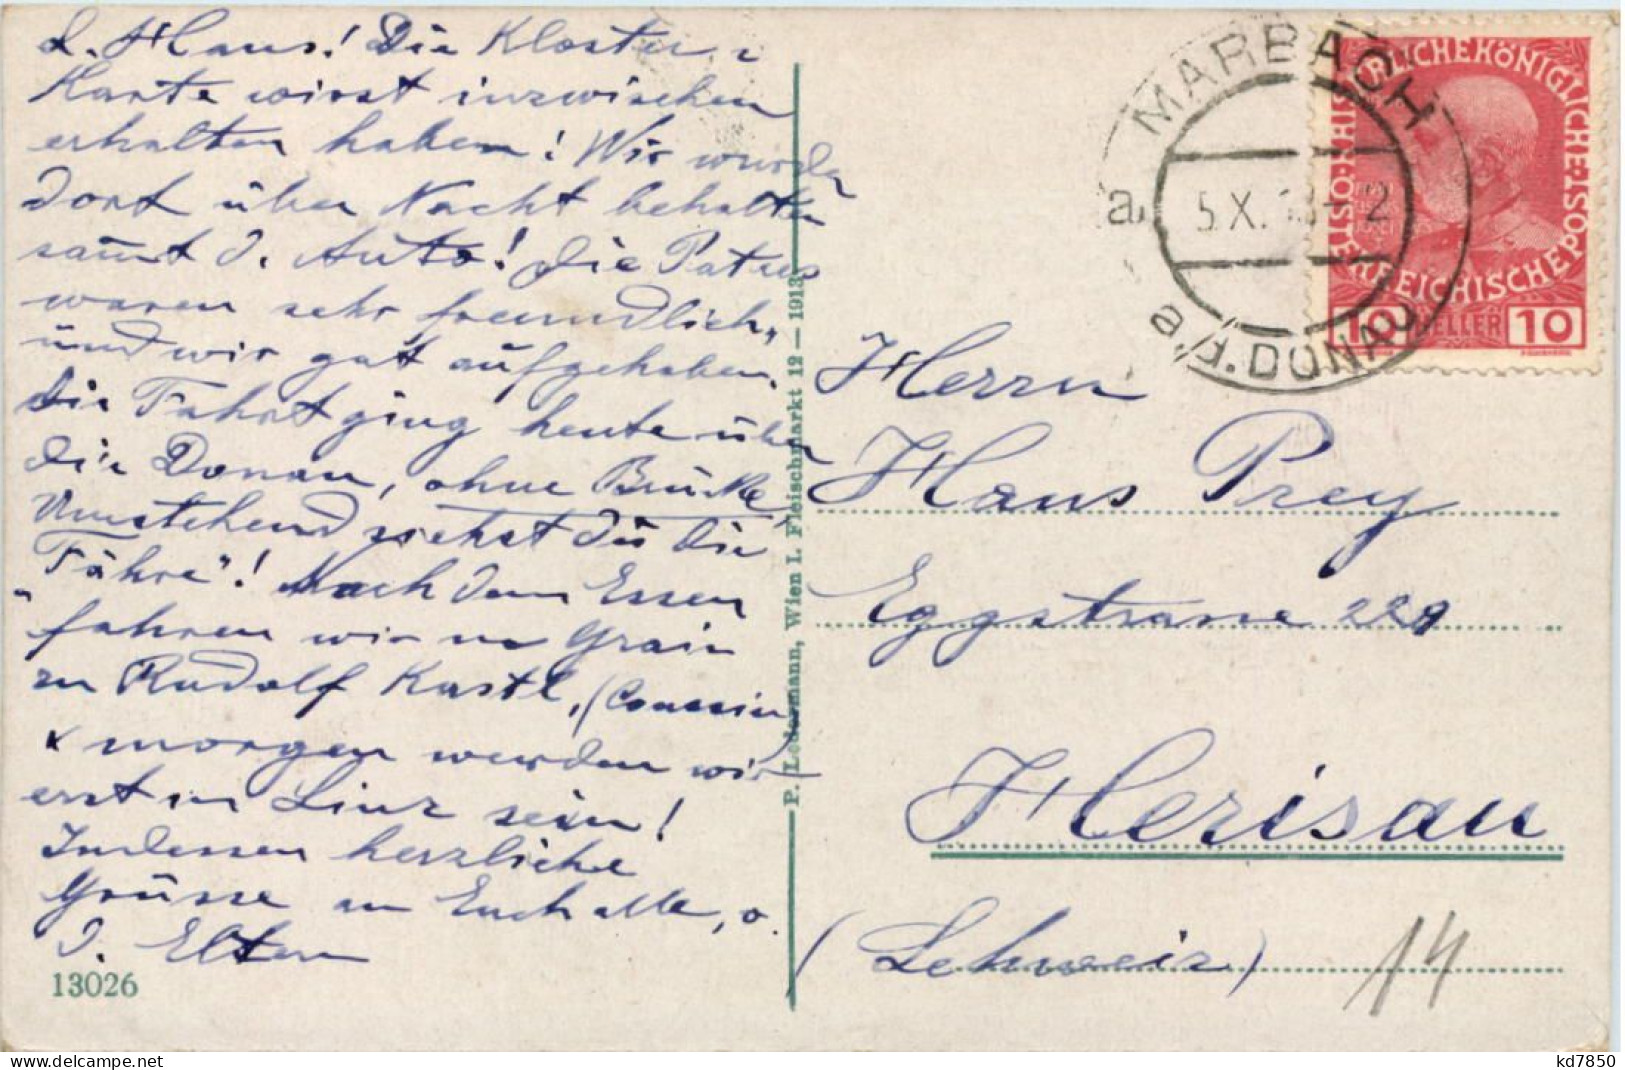 L. Hans! Die Kloster-
Karte wirst inzwischen
erhalten haben! Wir wurden
dort über Nacht behalten
samt d. Auto! Die Patres
waren sehr freundlich,
und wir gut aufgehoben.
Die Fahrt ging heute über
die Donau, ohne Brücke,
Umstehend siehst du die
„Fähre"! Nach dem Essen
fahren wir n. Grein
zu Rudolf Kastl, (Coussin)
x morgen werden wir
erst in Linz sein!
Indessen herzliche
Grüsse an Euch alle, v.
d. Eltern
13026
P. Ledermann, Wien I. Fleischmarkt 12 — 1913
MARBACH
a
5.X.
a/d. DONAU
KAISERLICHE KÖNIGLICHE
ÖSTERREICHISCHE POST
10 HELLER 10
Herrn
Hans Prey
Eggstrasse 229
Herisau
(Schweiz)
14
www.delcampe.net
kd7850